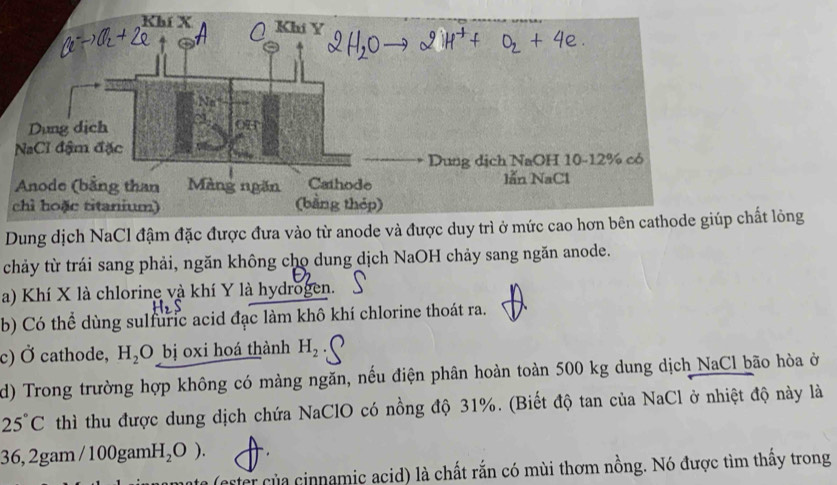 Khí X
Khí Y
Cl⁻→Cl₂+2e
A
C
2H₂O → 2H⁺ + O₂ + 4e.
Na⁺
Cl⁻
OH⁻
Dung dịch
NaCl đậm đặc
Dung dịch NaOH 10-12% có
lẫn NaCl
Anode (bằng than
chì hoặc titanium)
Màng ngăn
Cathode
(bằng thép)
Dung dịch NaCl đậm đặc được đưa vào từ anode và được duy trì ở mức cao hơn bên cathode giúp chất lỏng
chảy từ trái sang phải, ngăn không cho dung dịch NaOH chảy sang ngăn anode.
O₂
a) Khí X là chlorine và khí Y là hydrogen. S
H₂S
b) Có thể dùng sulfuric acid đặc làm khô khí chlorine thoát ra. Đ
c) Ở cathode, H₂O bị oxi hoá thành H₂. S
d) Trong trường hợp không có màng ngăn, nếu điện phân hoàn toàn 500 kg dung dịch NaCl bão hòa ở
25°C thì thu được dung dịch chứa NaClO có nồng độ 31%. (Biết độ tan của NaCl ở nhiệt độ này là
36,2gam/100gamH₂O ). Đ.
(ester của cinnamic acid) là chất rắn có mùi thơm nồng. Nó được tìm thấy trong